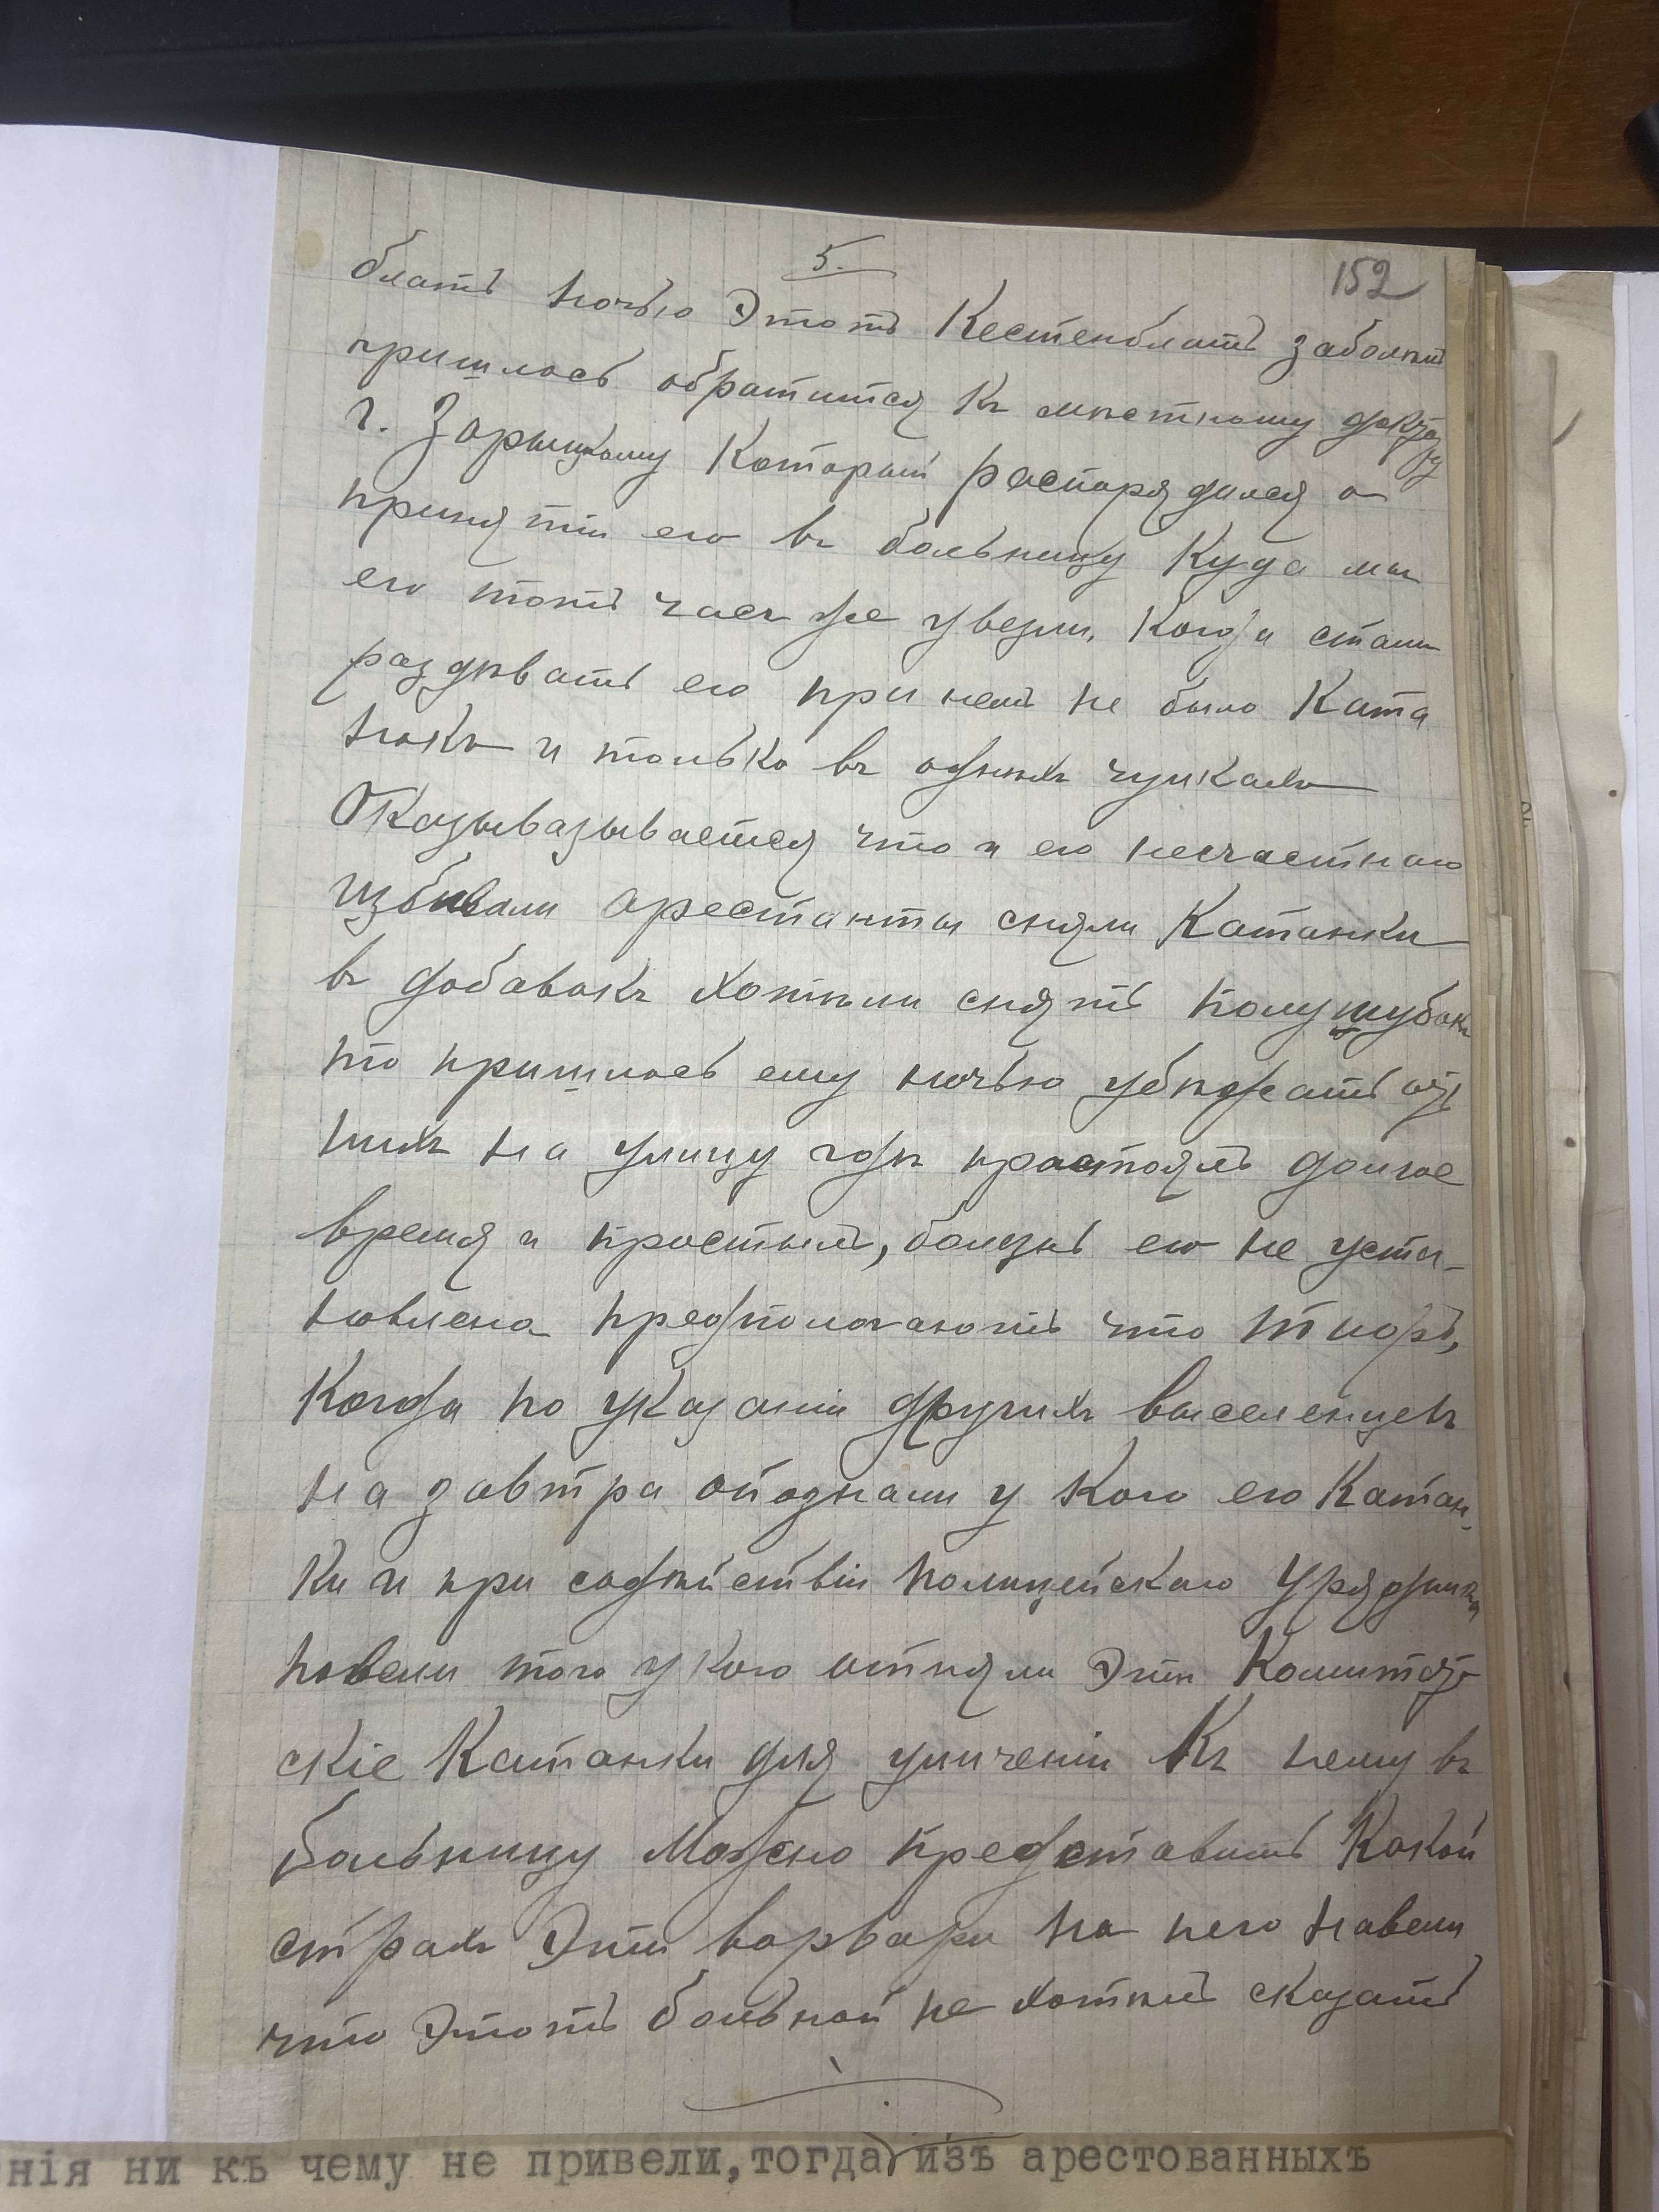 5.
152
блатъ ночью Этотъ Кестенблатъ заболѣлъ
пришлось обратится Къ мѣстному доктору
г. Зарыцкому Который распорядился о
принятіи его въ больницу Куда мы
его тотъ часъ же увезли, Когда стали
раздѣвать его при немъ не было Ката
нокъ и только въ однихъ чулкахъ
Оказывазывается что и его несчастнаго
избивали арестанты сняли Катанки
въ добавокъ Хотѣли снять полушубокъ
то пришлось ему ночью убѣжать отъ
нихъ на улицу гдѣ простоялъ долгое
время и простылъ, болѣзнь его не уста-
новлена предполагаютъ что тифъ,
Когда по указанію другихъ выселенцевъ
на завтра опознали у Кого его Катан-
Ки и при содѣйствіи полицейскаго Урядника
повели того у кого отняли Эти
скіе Катанки для уличенія Къ нему въ
больницу Можно представить Какой
страхъ Эти варвары на него навели
что Этотъ больной не хотѣлъ сказать
нія ни къ чему не привели, тогда изъ арестованныхъ